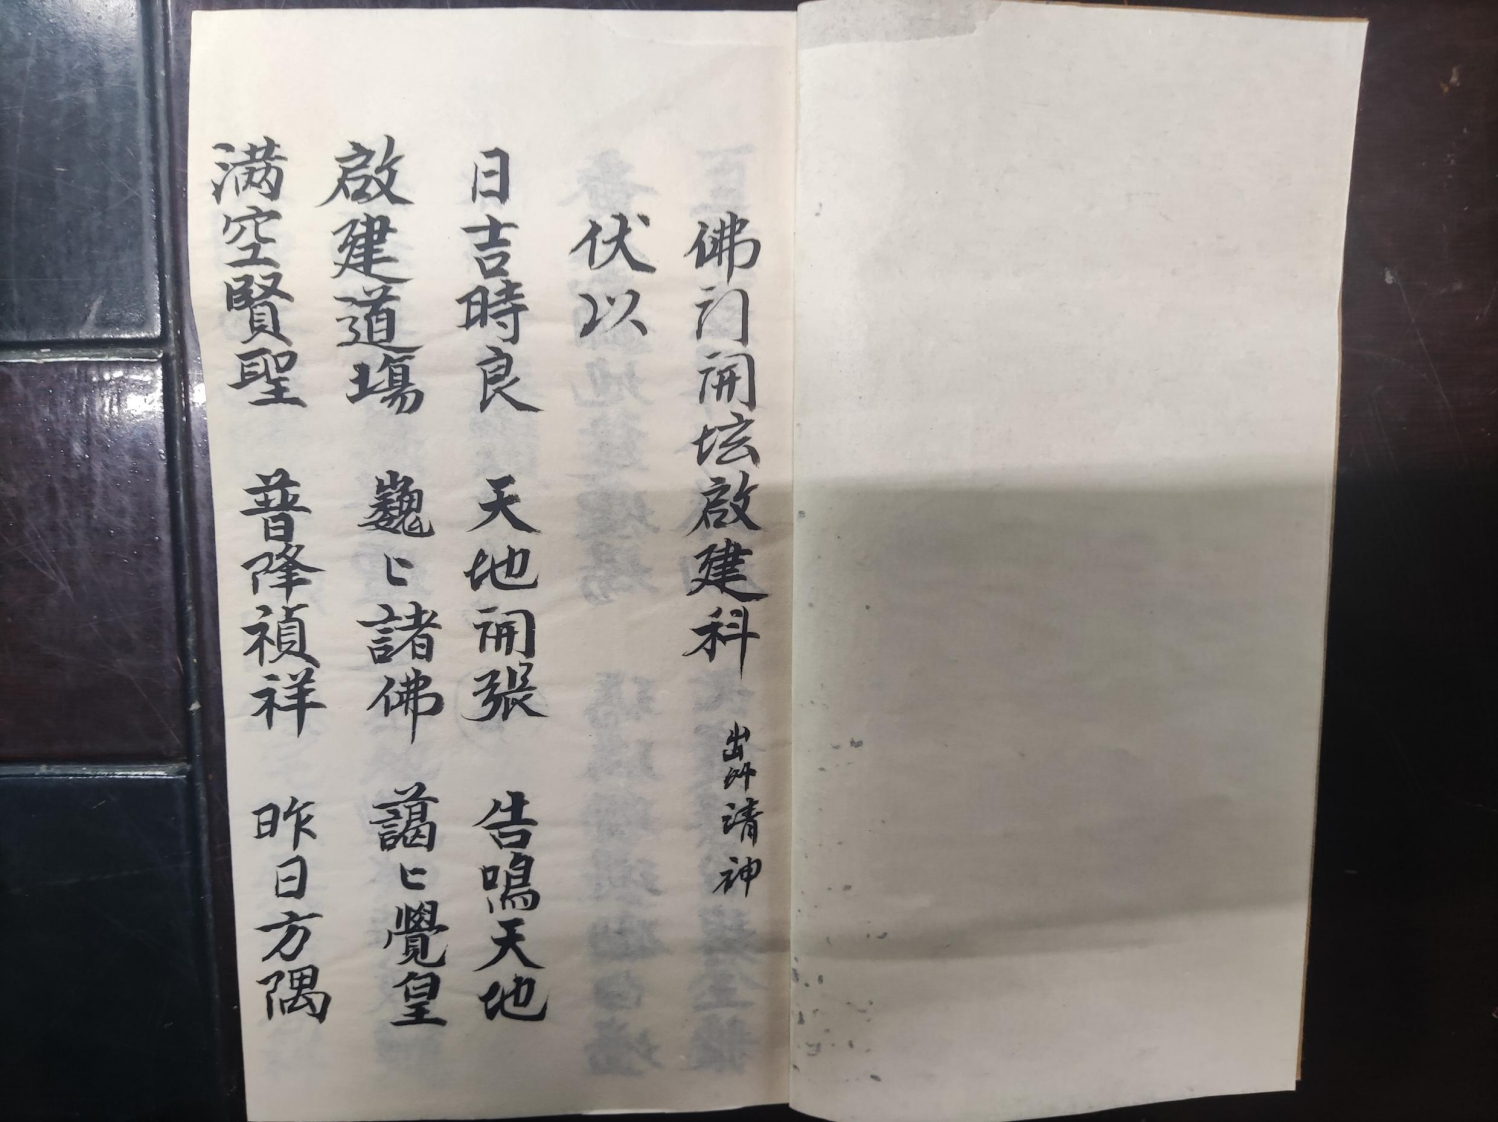 佛门開坛啟建科 出 請神
伏以
日吉時良 天地開張 告鳴天地
啟建道場 巍〻諸佛 藹〻覺皇
满空賢聖 普降禎祥 昨日方隅